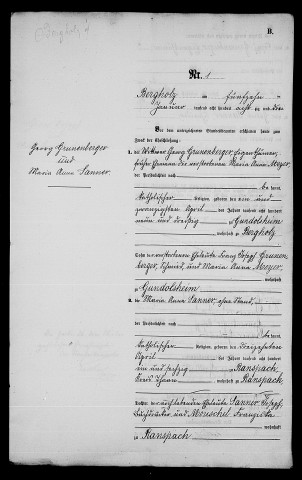 B.
Nr. 1
Bergholz am fünfzehn
Januar tausend acht hundert acht und
Vor dem unterzeichneten Standesbeamten erschienen heute zum
Zweck der Eheschließung:
Georg Grunenberger
und
Maria Anna Sanner
1. der Wittwer Georg Grunenberger, Eigenthümer,
früher Ehemann der verstorbenen Maria Anna Meyer,
der Persönlichkeit nach
be kannt,
katholischer Religion, geboren den ein und
zwanzigsten April des Jahres tausend acht hundert
neun und dreißig zu Gundolsheim
wohnhaft zu Bergholz
Sohn der verstorbenen Eheleute Franz Joseph Grunen
berger, Schmid, und Maria Anna Meyer,
wohnhaft
zu Gundolsheim
2. die Maria Anna Sanner, ohne Stand,
der Persönlichkeit nach
be kannt,
katholischer Religion, geboren den dreizehnten
April des Jahres tausend acht hundert
ein und sechzig zu Ranspach
Kreis Thann wohnhaft zu Ranspach
Tochter der Eheleute Sanner Joseph,
und Franziska
wohnhaft
zu Ranspach